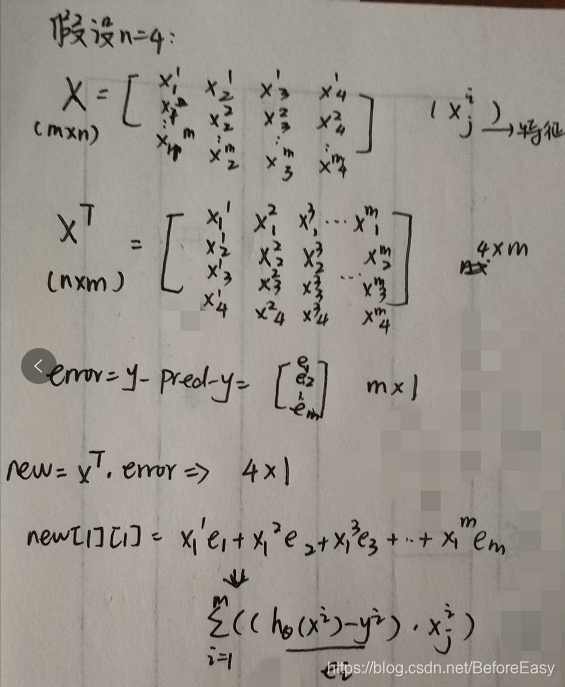 假设n=4:
X = [ x₁¹ x₂¹ x₃¹ x₄¹
(m×n) x₁² x₂² x₃² x₄² ( xⱼⁱ ) → 特征
⋮ ⋮ ⋮ ⋮
x₁ᵐ x₂ᵐ x₃ᵐ x₄ᵐ ]
Xᵀ = [ x₁¹ x₁² x₁³ ... x₁ᵐ
x₂¹ x₂² x₂³ x₂ᵐ 4×m
(n×m) x₃¹ x₃² x₃³ ... x₃ᵐ
x₄¹ x₄² x₄³ x₄ᵐ ]
error = y - pred-y = [ e₁ e₂ ⋮ eₘ ] m×1
new = xᵀ. error => 4×1
new[1][1] = x₁¹e₁ + x₁²e₂ + x₁³e₃ + ·· + x₁ᵐeₘ
↓
∑ᵢ₌₁ᵐ ((hθ(xⁱ) - yⁱ) · xⱼⁱ)
eᵢ
https://blog.csdn.net/BeforeEasy